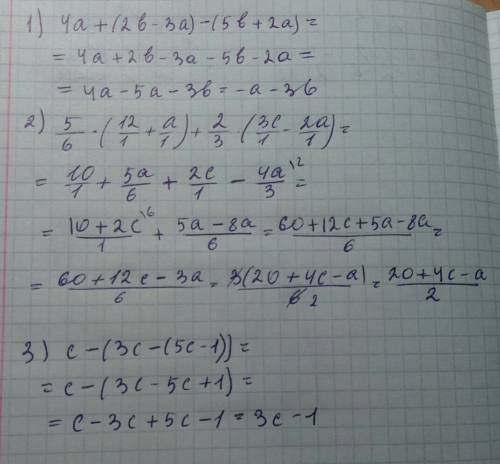 1) 4a+(2в-3a)-(5в+2a)=
= 4a+2в-3a-5в-2a=
= 4a-5a-3в=-a-3в
2) 5/6 · (12/1 + a/1) + 2/3 · (3c/1 - 2a/1)=
= 10/1 + 5a/6 + 2c/1 - 4a\2/3 =
= 10+2c\6/1 + 5a-8a/6 = 60+12c+5a-8a/6 =
= 60+12c-3a/6 = 3(20+4c-a)/6 2 = 20+4c-a/2
3) c-(3c-(5c-1))=
= c-(3c-5c+1)=
= c-3c+5c-1=3c-1